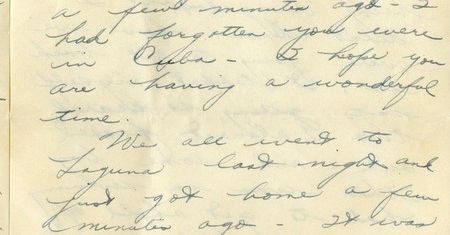 a few minutes ago - I
had forgotten you were
in Cuba - I hope you
are having a wonderful
time.
We all went to
Laguna last night and
just got home a few
minutes ago - It was